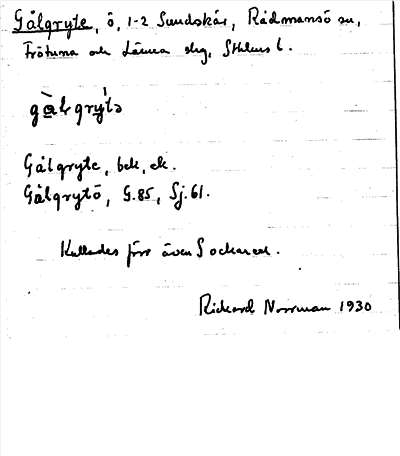 Gålgryte, ö, 1-2 Sundskär, Rådmansö sn,
Frötuna och Länna slg, Sthlms l.
Gålgryte, bek, ek.
Gålgrytö, G.85, Sj.61.
Kallades förr även Sockaren.
Rickard Norrman 1930